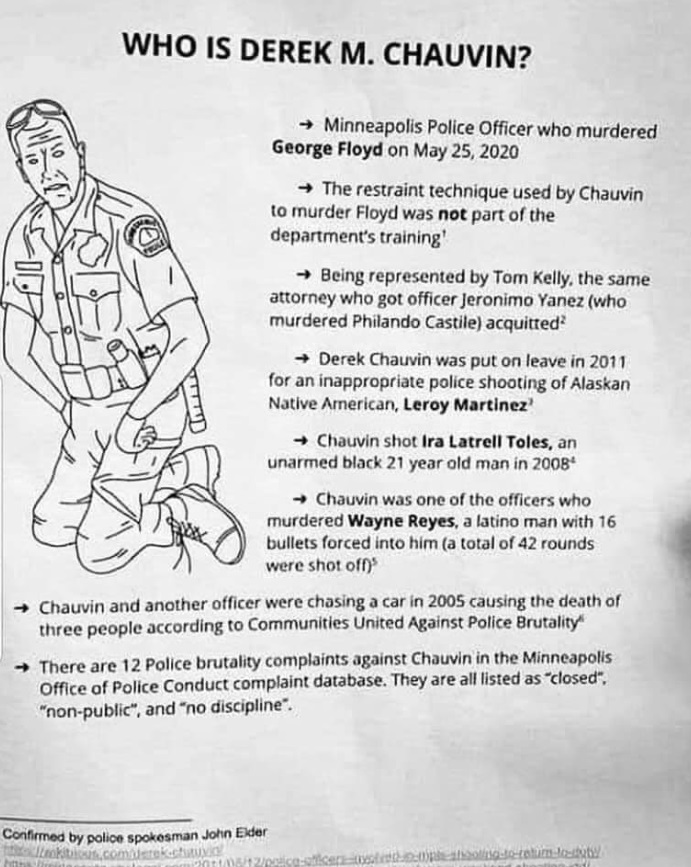 WHO IS DEREK M. CHAUVIN?
→ Minneapolis Police Officer who murdered
George Floyd on May 25, 2020
→ The restraint technique used by Chauvin
to murder Floyd was not part of the
department's training¹
→ Being represented by Tom Kelly, the same
attorney who got officer Jeronimo Yanez (who
murdered Philando Castile) acquitted²
→ Derek Chauvin was put on leave in 2011
for an inappropriate police shooting of Alaskan
Native American, Leroy Martinez³
→ Chauvin shot Ira Latrell Toles, an
unarmed black 21 year old man in 2008⁴
→ Chauvin was one of the officers who
murdered Wayne Reyes, a latino man with 16
bullets forced into him (a total of 42 rounds
were shot off)⁵
→ Chauvin and another officer were chasing a car in 2005 causing the death of
three people according to Communities United Against Police Brutality⁶
→ There are 12 Police brutality complaints against Chauvin in the Minneapolis
Office of Police Conduct complaint database. They are all listed as "closed",
"non-public", and "no discipline".
Confirmed by police spokesman John Elder